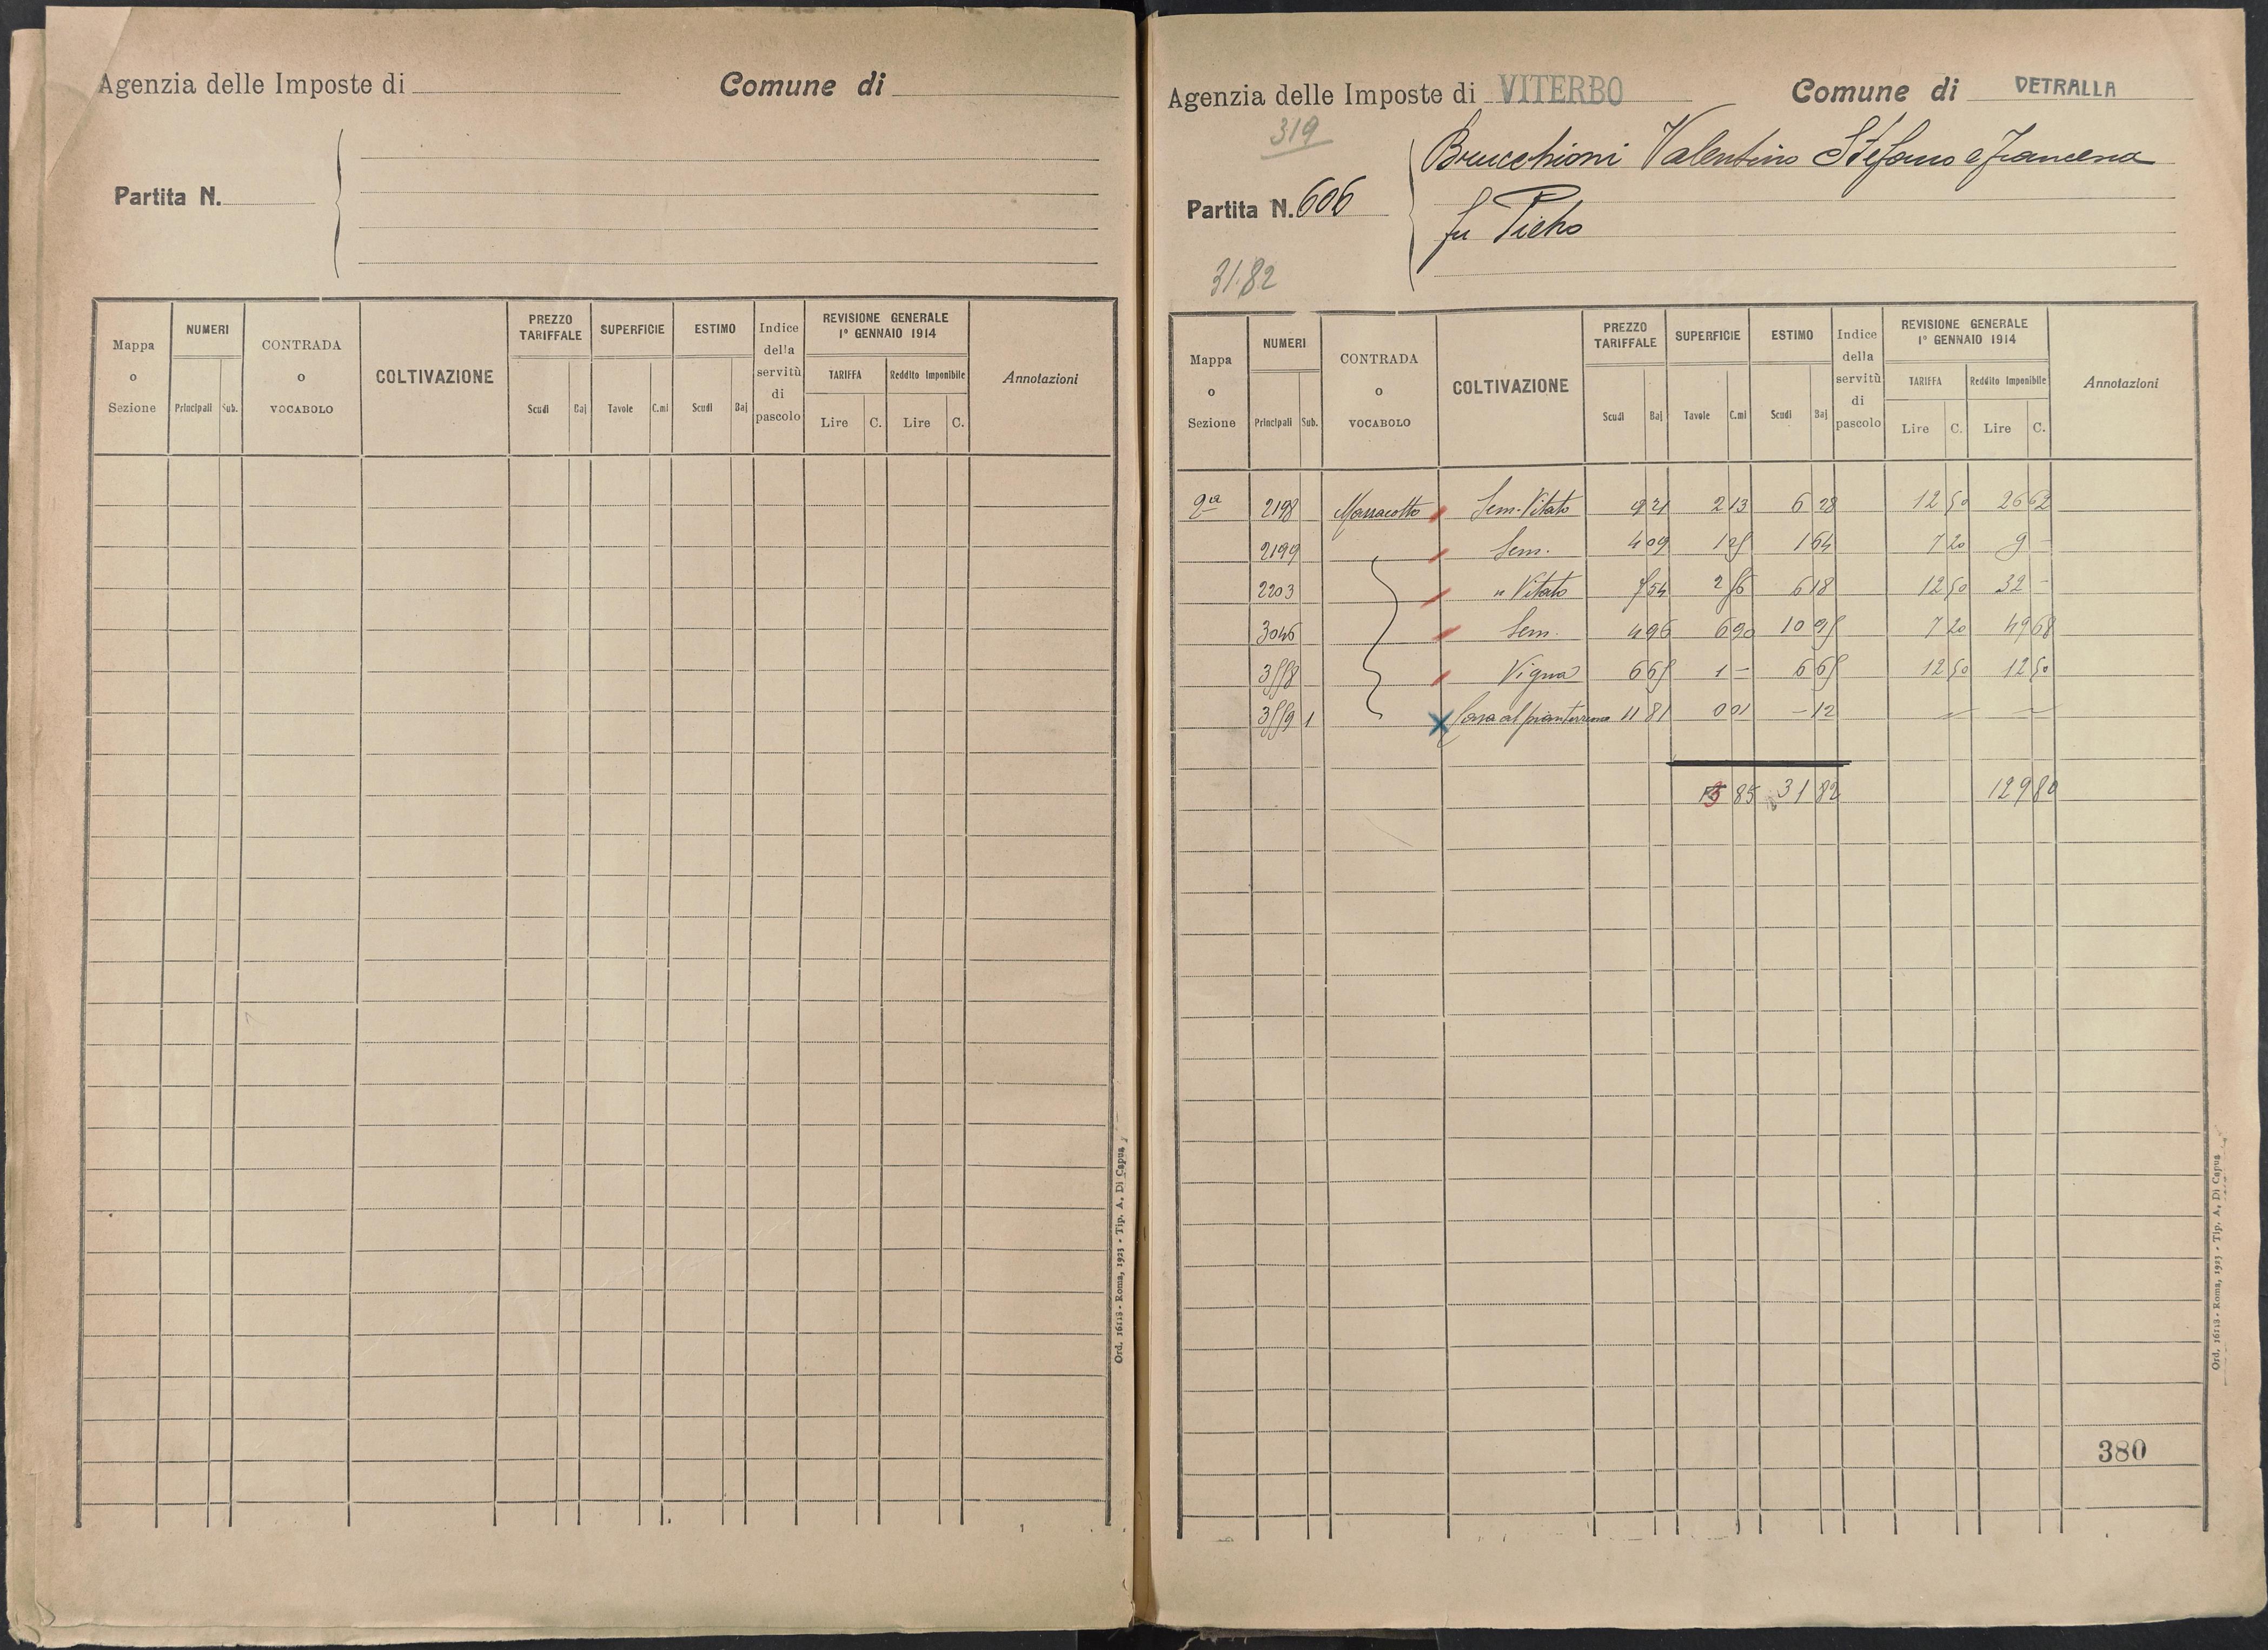 Agenzia delle Imposte di
Comune di
Partita N.
Mappa o Sezione
NUMERI
Principali Sub.
CONTRADA o VOCABOLO
COLTIVAZIONE
PREZZO TARIFFALE
Scudi Baj
SUPERFICIE
Tavole C.mi
ESTIMO
Scudi Baj
Indice della servitù di pascolo
REVISIONE GENERALE
1° GENNAIO 1914
TARIFFA Reddito Imponibile
Lire C. Lire C.
Annotazioni
Ord. 16118 - Roma, 1923 - Tip. A. Di Capua
Agenzia delle Imposte di VITERBO
Comune di VETRALLA
319
Partita N. 606
Brucchioni Valentino Stefano e Francesca
fu Pietro
31.82
Mappa o Sezione
NUMERI
Principali Sub.
CONTRADA o VOCABOLO
COLTIVAZIONE
PREZZO TARIFFALE
Scudi Baj
SUPERFICIE
Tavole C.mi
ESTIMO
Scudi Baj
Indice della servitù di pascolo
REVISIONE GENERALE
1° GENNAIO 1914
TARIFFA Reddito Imponibile
Lire C. Lire C.
Annotazioni
2a 2198 Sem. Vitato 2 13 6 28 12 50 26 62
2199 Sem. 4 09 1 25 1 64 7 20 9 -
2203 " Vitato 7 54 2 56 6 18 12 50 32 -
3046 Sem. 4 96 6 90 10 95 7 20 49 68
3558 Vigna 6 65 1 - 6 65 12 50 12 50
3559 1 Casa al pianterreno 11 81 0 01 - 12 - -
13 85 31 82 129 80
380
Ord. 16118 - Roma, 1923 - Tip. A. Di Capua